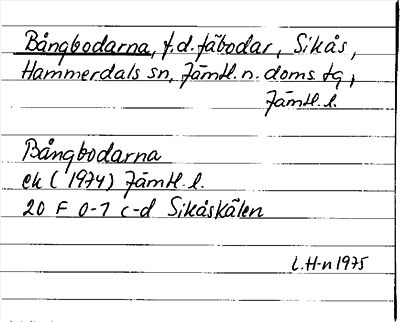 Bångbodarna, f.d. fäbodar, Sikås,
Hammerdals sn, Jämtl. n. doms. tg,
Jämtl. l.
Bångbodarna
ek (1974) Jämtl. l.
20 F 0-1 c-d Sikåskälen
L.H-n 1975